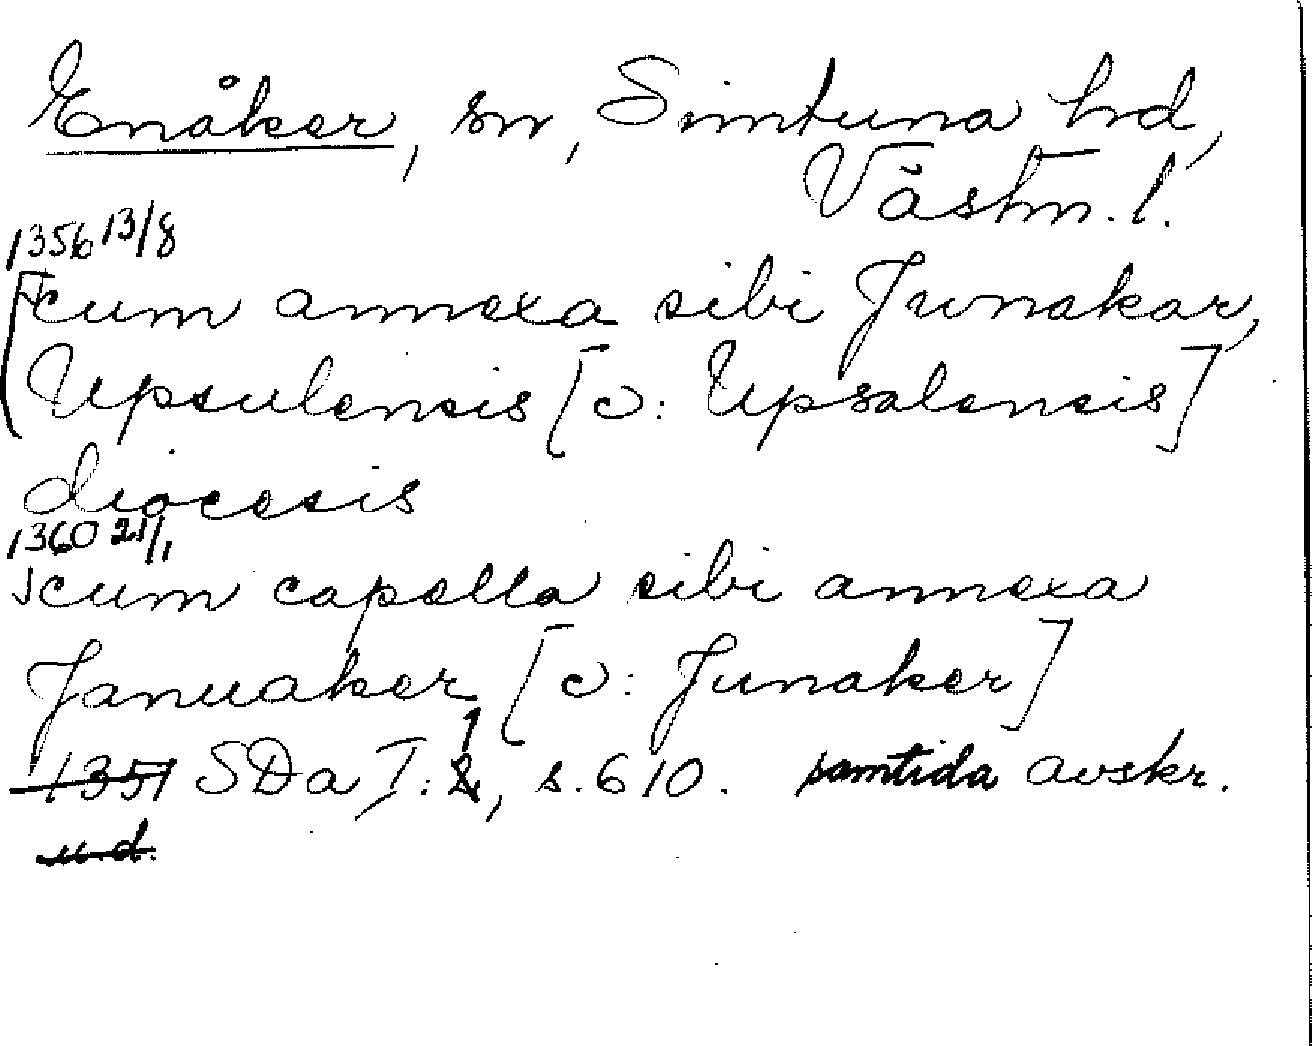 Enåker, sn, Simtuna hd,
Västm. l.
1356 13/8
[cum annexa sibi Junakar,
Upsulensis [ɔ: Upsalensis]
diocesis
1360 21/1
cum capella sibi annexa
Januaker [ɔ: Junaker]
1351 SDa I: 1, s. 610. samtida avskr.
u.d.